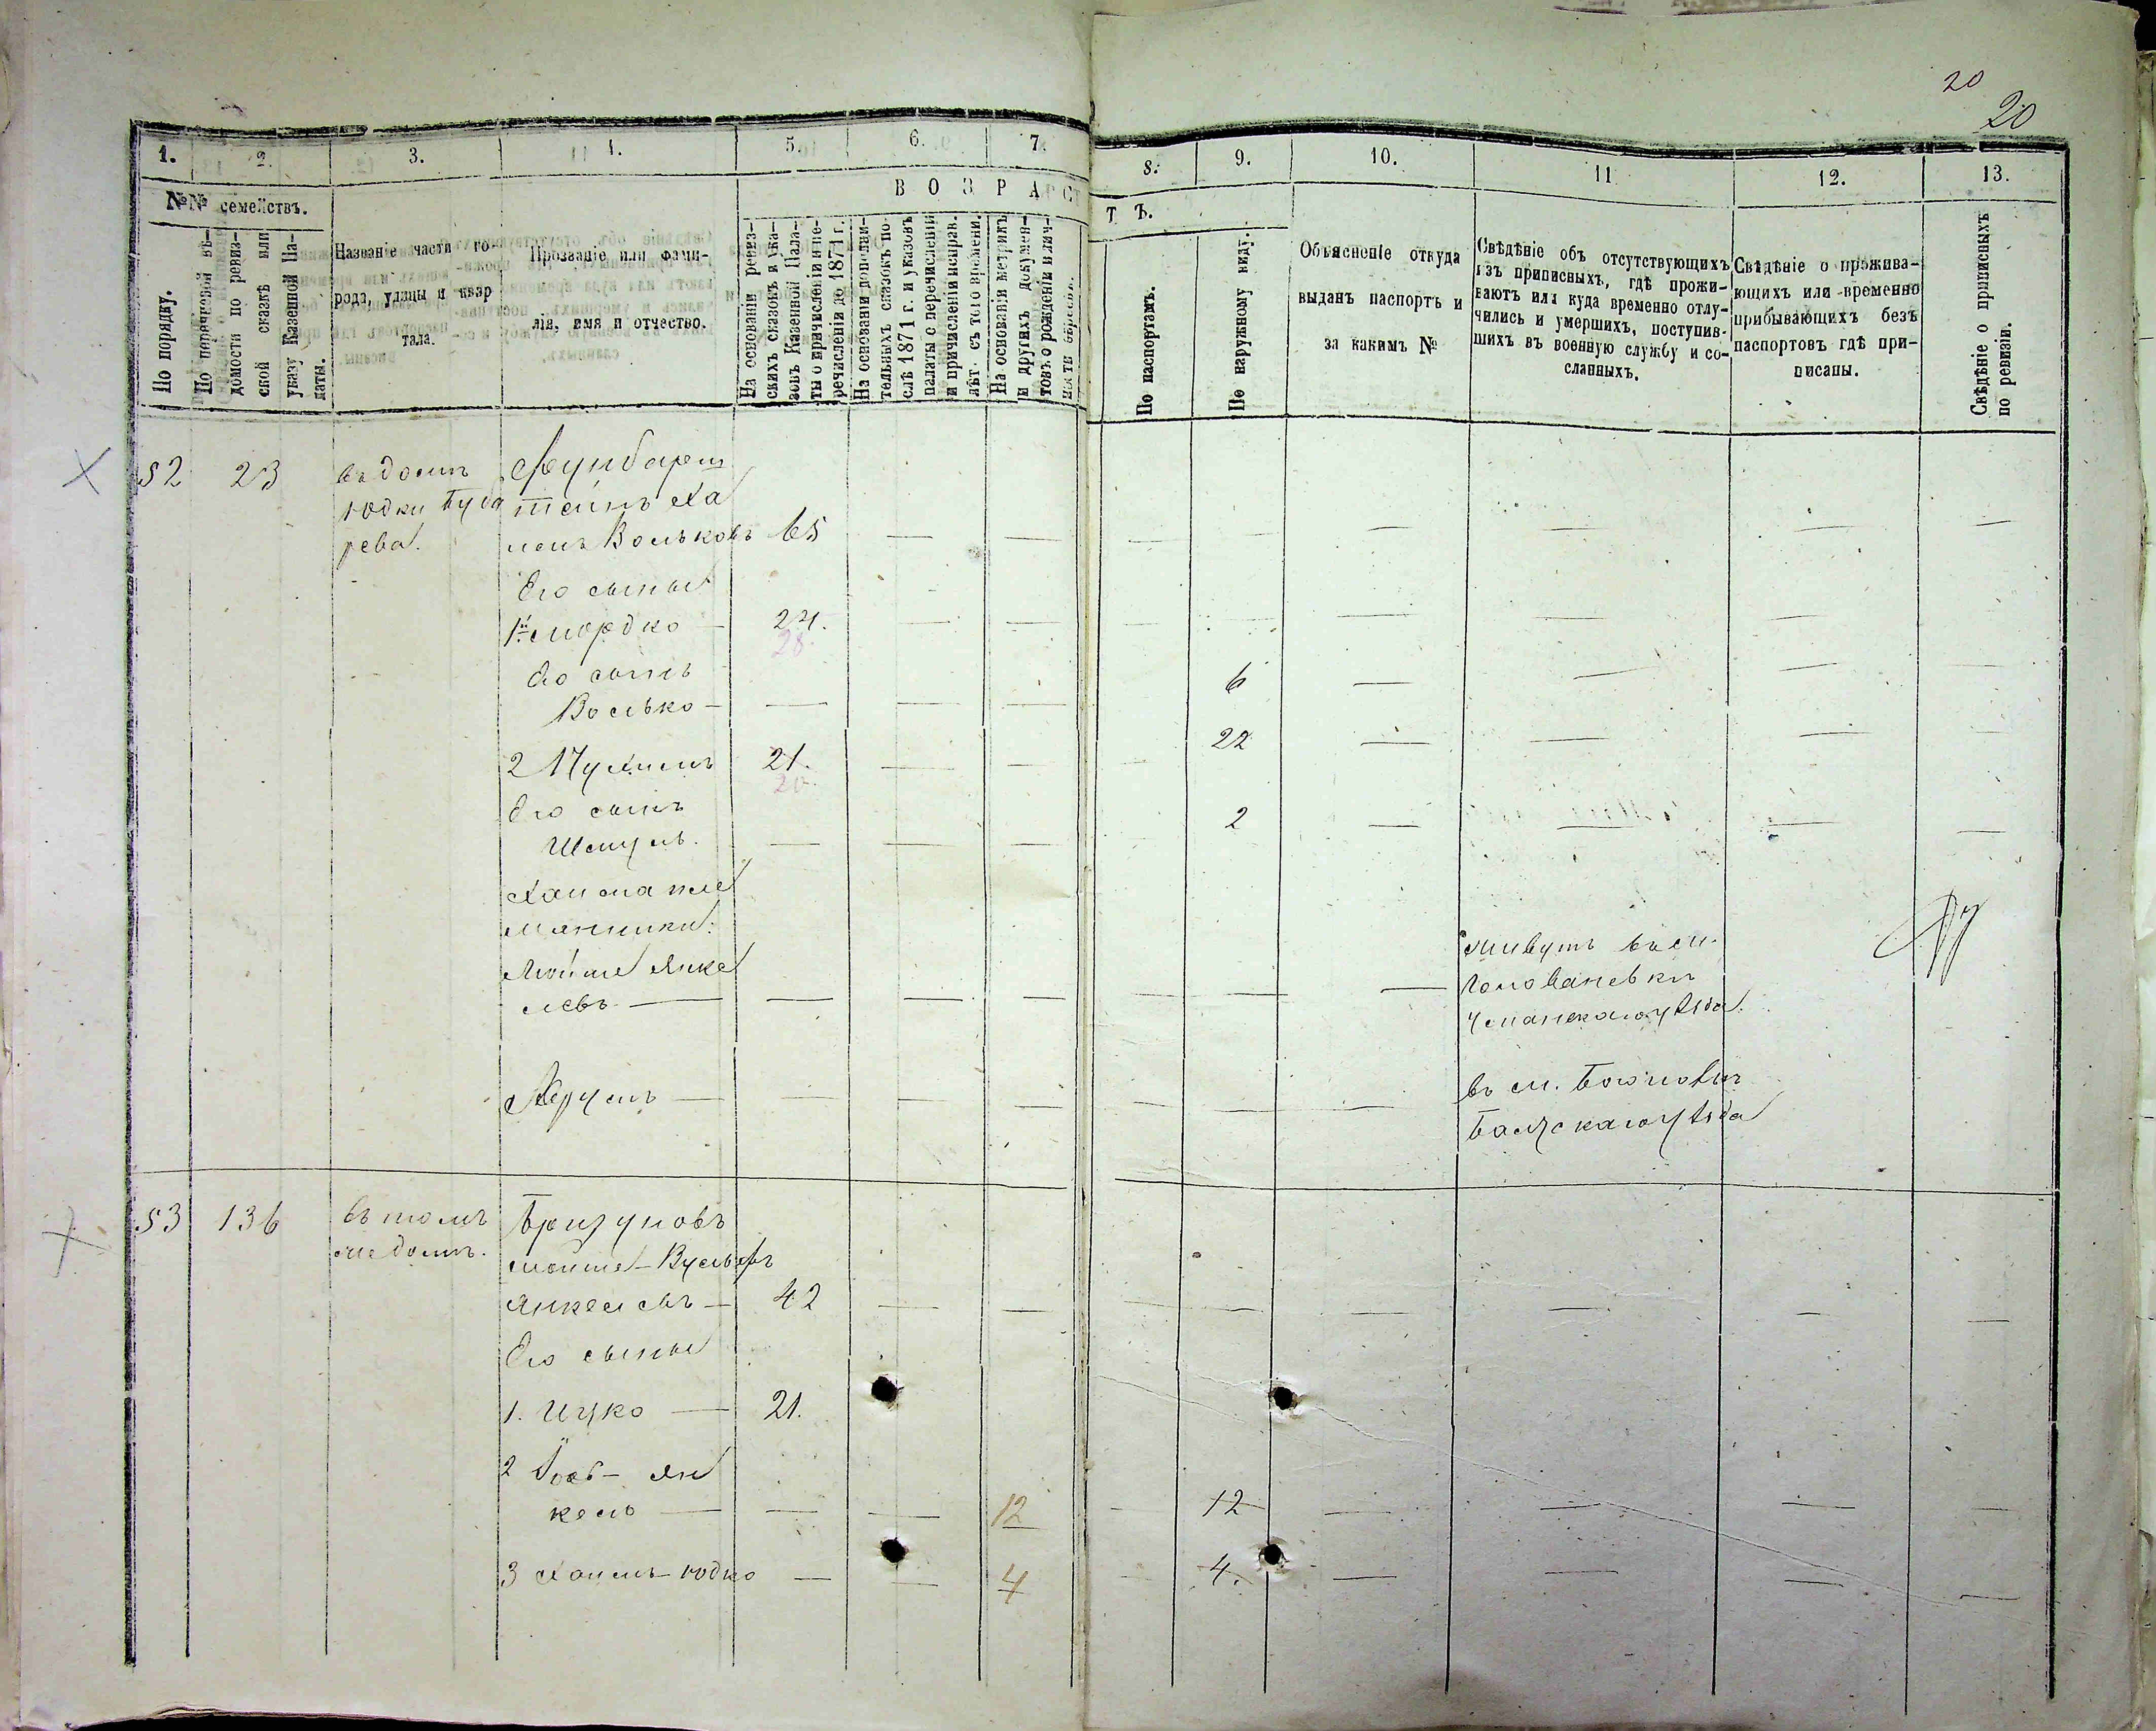 20
20
1. 2. 3. 4. 5. 6. 7. 8. 9. 10. 11 12. 13.
№№ семействъ.
По порядку.
По перечневой вѣ-
домости по ревиз-
ской сказкѣ или
указу Казенной Па-
латы.
Названіе части го-
рода, улицы и квар
тала.
Прозваніе или фами-
лія, имя и отчество.
ВОЗРАСТЪ.
На основаніи ревиз-
скихъ сказокъ и ука-
зовъ Казенной Пала-
ты о причисленіи и пе-
речисленіи до 1871 г.
На основаніи дополни-
тельныхъ сказокъ по-
слѣ 1871 г. и указовъ
палаты о перечисленіи
и причисленіи исправ.
лѣт. съ того времени.
На основаніи метрикъ
и другихъ докумен-
товъ о рожденіи или
По паспортомъ.
По наружному виду.
Объясненіе откуда
выданъ паспортъ и
за какимъ №
Свѣдѣніе объ отсутствующихъ
изъ приписныхъ, гдѣ прожи-
ваютъ или куда временно отлу-
чились и умершихъ, поступив-
шихъ въ военную службу и со-
сланныхъ.
Свѣдѣніе о прожива-
ющихъ или временно
прибывающихъ безъ
паспортовъ гдѣ при-
писаны.
Свѣдѣніе о приписныхъ
по ревизіи.
52 23 въ домѣ
Юдки Буда
рева.
тейнъ Ха
имъ Вольковъ 65 — — — — — — —
Его сыны
1й Мордко — 24. — — — — — — —
28.
Его сынъ
Волько — — — — 6 — — — —
2 Нухимъ 21. — — — 22 — — —
20.
Его сынъ
Шмуль. — — — 2 — — — —
Хаима пле
мянники:
Мойше Янке
левъ — — — — — — —
живутъ въ м.
Голованевкѣ
Уманскаго уѣзда.
— — — — — —
въ м.
Балтскаго уѣзда
53 136 въ томъ
же домѣ.
Бризуновъ
Мойше-Вульфъ
Янкелевъ — 42 — — — — — — — —
Его сыны
1. Ицко — 21.
2 Іось- Ян
кель — — — 12 — 12 — — — —
3 Хаимъ-Юдко — — 4 — 4. — — — —